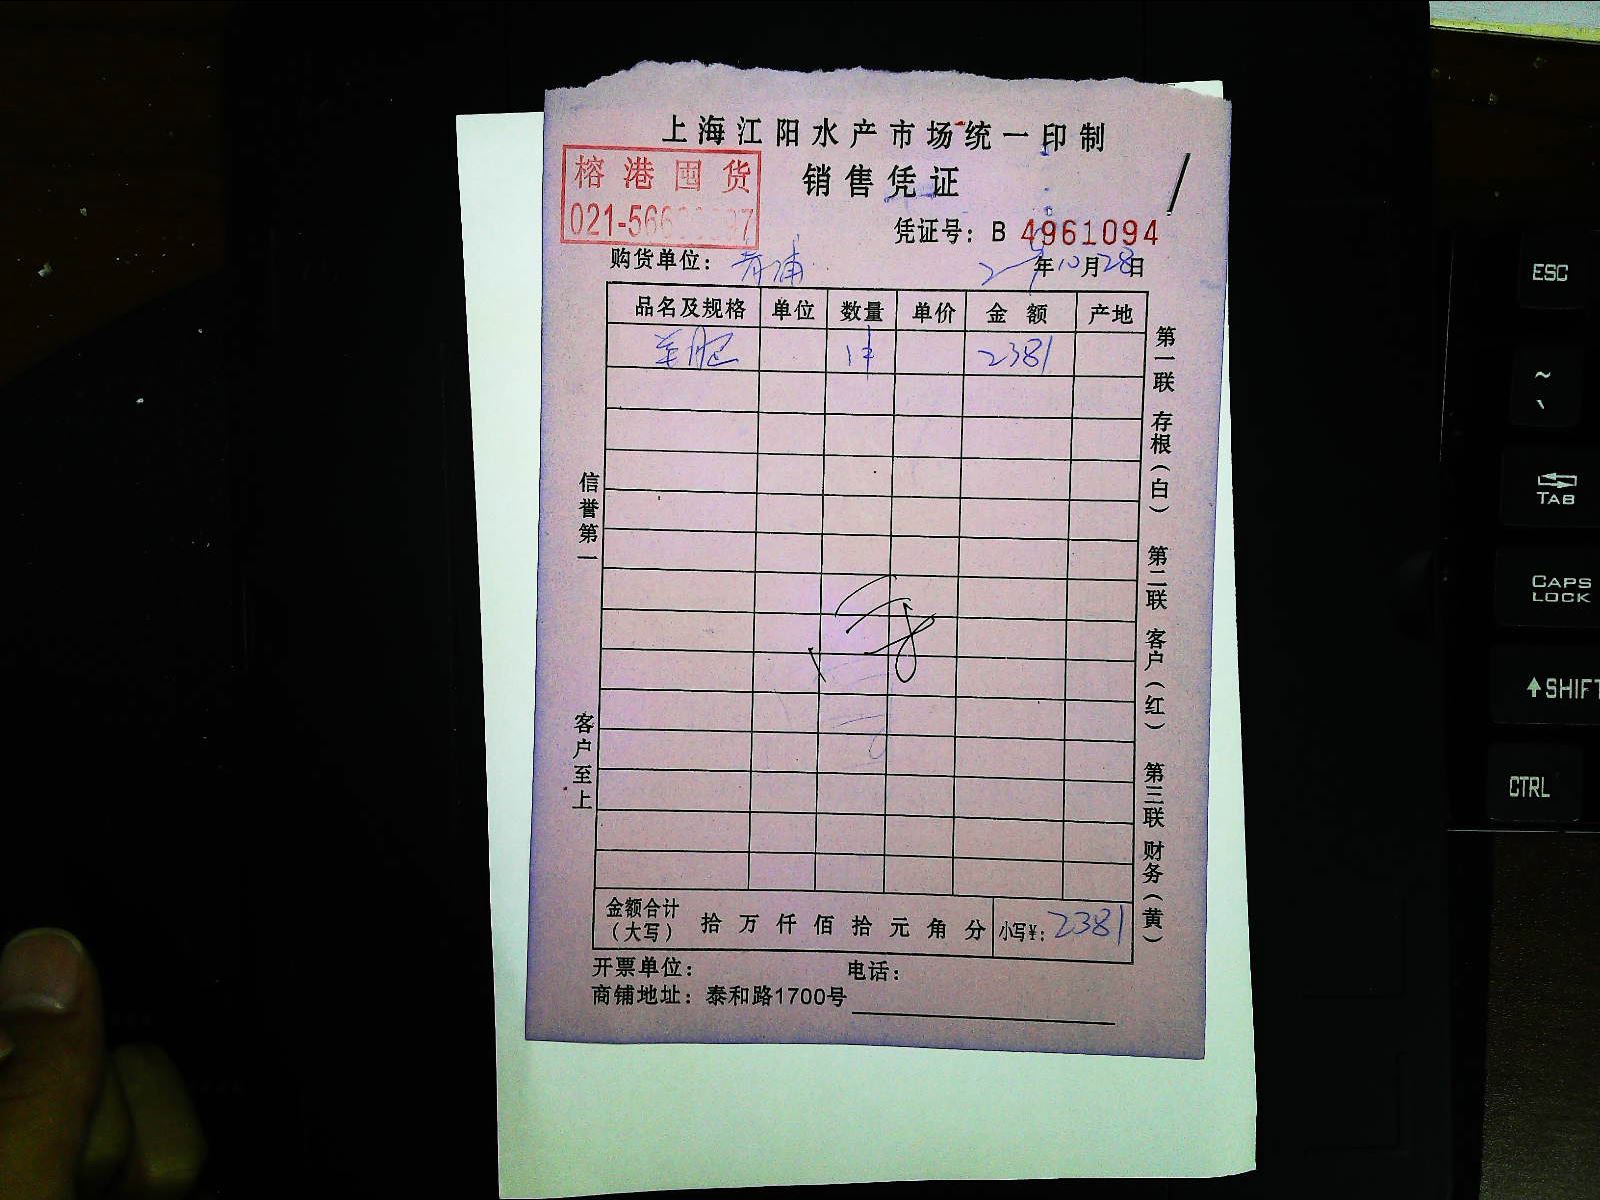 上海江阳水产市场统一印制
榕港囤货
销售凭证
021-566
凭证号：B 4961094
购货单位：青浦
年10月28日
品名及规格 单位 数量 单价 金额 产地
2381
信誉第一
客户至上
第一联 存根（白） 第二联 客户（红） 第三联 财务（黄）
金额合计（大写） 拾 万 仟 佰 拾 元 角 分 小写¥：2381
开票单位： 电话：
商铺地址：泰和路1700号
ESC
~
TAB
CAPS LOCK
SHIFT
CTRL